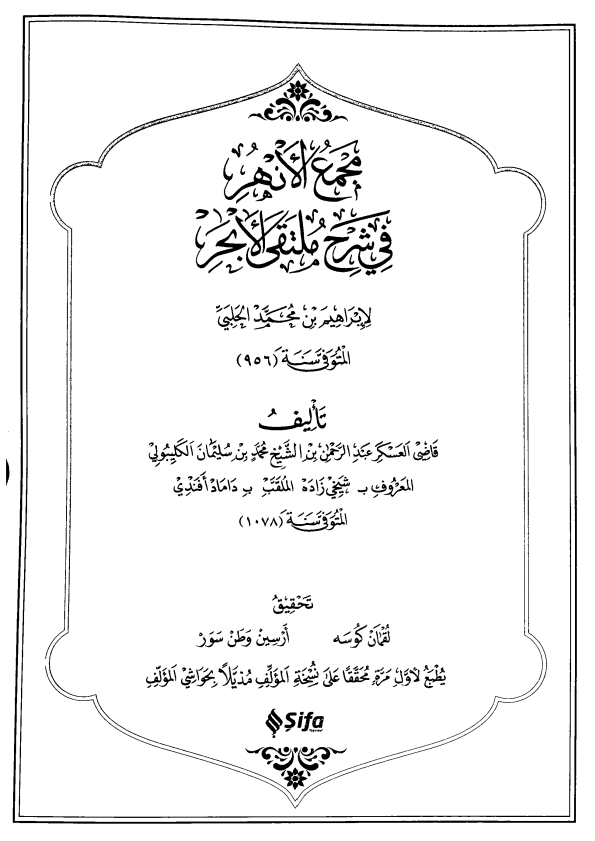 مَجْمَعُ الأَنْهُرِ
فِي شَرْحِ مُلْتَقَى الأَبْحُرِ
لِإِبْرَاهِيمَ بْنِ مُحَمَّدٍ الحَلَبِيِّ
المُتَوَفَّى سَنَةَ (٩٥٦)
تَأْلِيفُ
قَاضِي العَسْكَرِ عَبْدِ الرَّحْمٰنِ بْنِ الشَّيْخِ مُحَمَّدِ بْنِ سُلَيْمَانَ الكَلِيبُولِي
المَعْرُوفِ بـ شَيْخِي زَادَه المُلَقَّبِ بـ دَامَاد أَفَنْدِي
المُتَوَفَّى سَنَةَ (١٠٧٨)
تَحْقِيقُ
لُقْمَانَ كُوسَه أَرْسِين وَطَنْ سَوَرْ
يُطْبَعُ لِأَوَّلِ مَرَّةٍ مُحَقَّقًا عَلَى نُسْخَةِ المُؤَلِّفِ مُذَيَّلًا بِحَوَاشِي المُؤَلِّفِ
Şifa